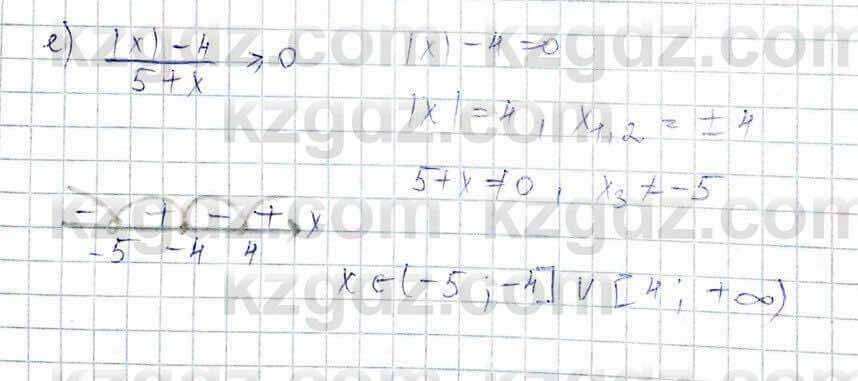 е) (|x| - 4)/(5 + x) ≥ 0
|x| - 4 = 0
|x| = 4, x₁,₂ = ± 4
5 + x ≠ 0, x₃ ≠ -5
- + - + x
-5 -4 4
x ∈ (-5; -4] ∪ [4; +∞)
kzgdz.com kzgdz.com
kzgdz.com kzgdz.com
kzgdz.com kzgdz.com
kzgdz.com kzgdz.com